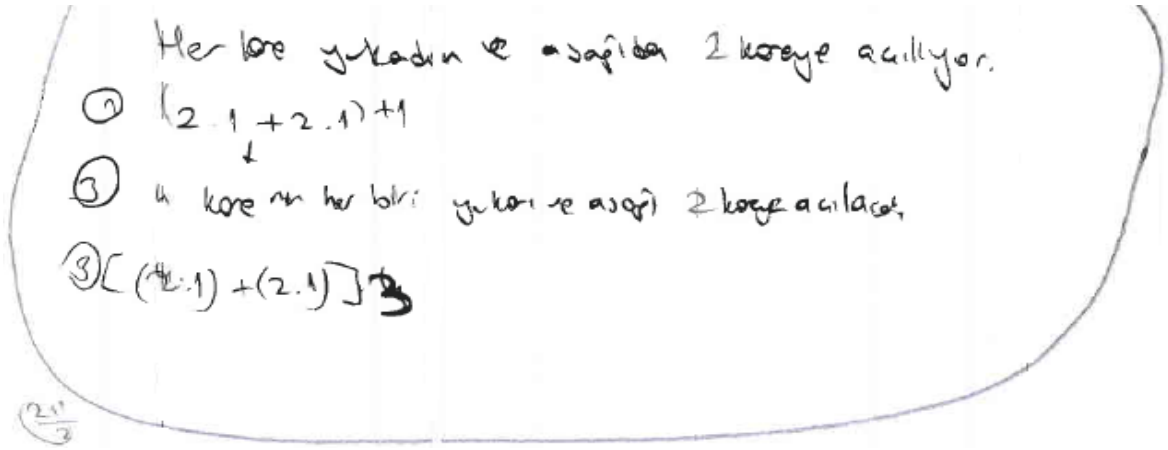 Her kare yukarıdan ve aşağıdan 2 kareye açılıyor.
② (2.1 + 2.1) + 1
↓
③ 4 karenin her biri yukarı ve aşağı 2 kareye açılacak,
③ [(4.1) + (2.1)] 3